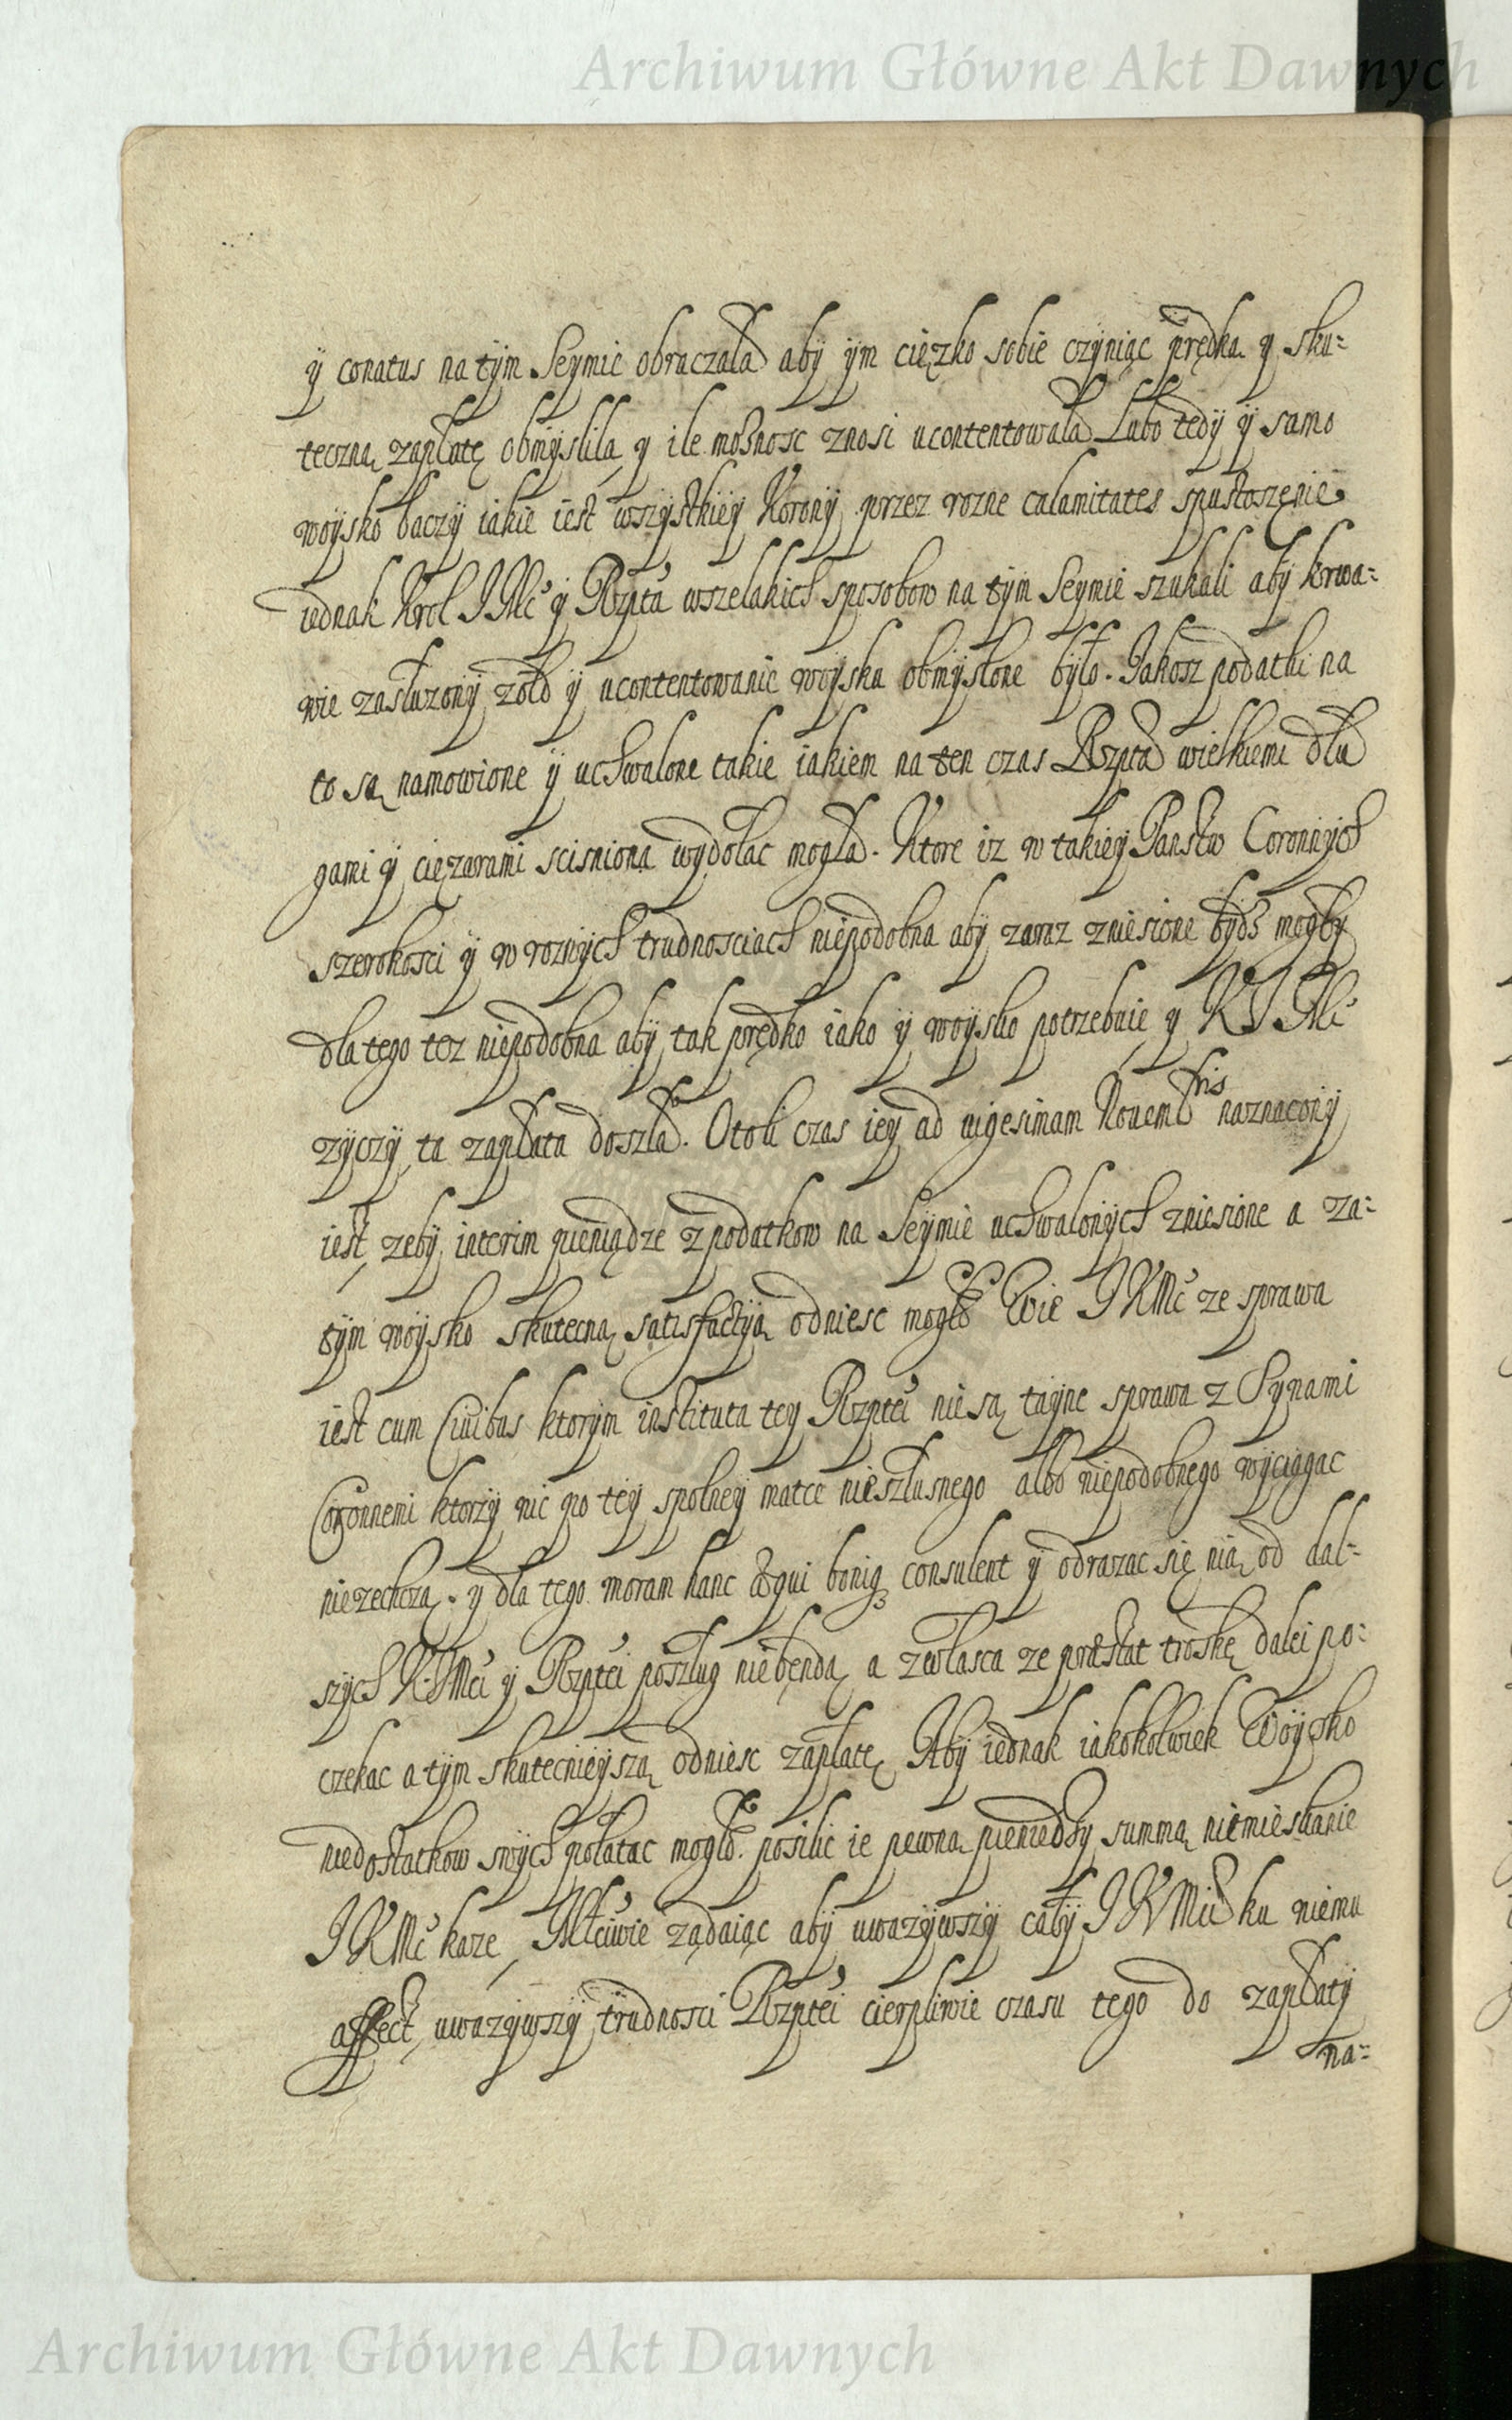 Archiwum Główne Akt Dawnych
ÿ conatus na tÿm Seymie obraczała abÿ ÿm cięzko sobie czÿniąc prędką y sku=
teczną zapłatę obmÿsliła y ile możnosc znosi ucontentowała Lubo tedÿ ÿ samo
woÿsko baczÿ iakie iest wszÿstkiey Koronÿ przez rozne calamitates spustoszęnie
iednak Krol J Mć ÿ Rzpta wszelakich sposobow na tÿm Seymie szukali abÿ krwa=
wie zasłuzonÿ żołd ÿ ucontentowanie woÿska obmÿslone bÿło. Jakosz podatki na
to są namowione ÿ uchwalone takie iakiem na ten czas Rzpta wielkiemi dłu
gami ÿ cięzarami scisniona wydołac mogła. Ktore iz w takiey Panstw Coronnÿch
szerokosci ÿ w roznÿch trudnosciach niepodobna abÿ zaraz zniesione bÿdź mogłÿ
dla tego tez niepodobna abÿ tak prędko iako ÿ woÿsko potrzebuie y K J Mć
zÿczÿ ta zapłata doszła. Otoli czas iey ad uigesimam Nouembris naznaconÿ
iest, zebÿ interim pieniądze z podatkow na Seÿmie uchwalonÿch zniesione a za=
tÿm woÿsko skutecną satisfactÿą odniesc mogło Wie J K Mć ze sprawa
iest cum Ciuibus ktorÿm instituta tey Rzptei nie są tayne sprawa z Synami
Coronnemi ktorzÿ nic po teÿ spolneÿ matce niesłusnego albo niepodobnego wÿciągac
niezechczą. y dla tego moram hanc æqui boniq; consulent ÿ odrazac się nią od dal=
szÿch K. J Mci y Rzptei posług niebęndą a zwłasca ze præstat troskę dalei po=
czekac a tÿm skutecnieÿszą odniesc zapłatę Abÿ iednak iakokolwiek Woÿsko
niedostatkow swÿch połatac mogło. posilic ie pewną pieniedzÿ summą niemieskanie
J K Mć kaze, Młciwie ządaiąc abÿ uwazÿwszÿ całÿ J K Mci ku niemu
affect, uwazÿwszÿ trudnosci Rzptei cierpliwie czasu tego do zapłatÿ
na=
Archiwum Główne Akt Dawnych